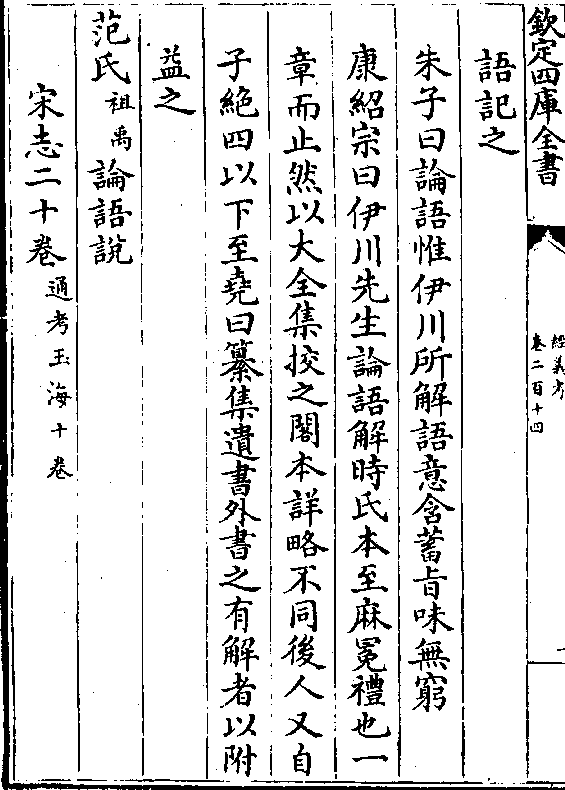 欽定四庫全書
經義考
卷二百十四
語記之
朱子曰論語惟伊川所解語意含蓄旨味無窮
康紹宗曰伊川先生論語解時氏本至麻冕禮也一
章而止然以大全集挍之閣本詳略不同後人又自
子絶四以下至堯曰纂集遺書外書之有解者以附
益之
范氏祖禹論語說
宋志二十卷通考玉海十卷